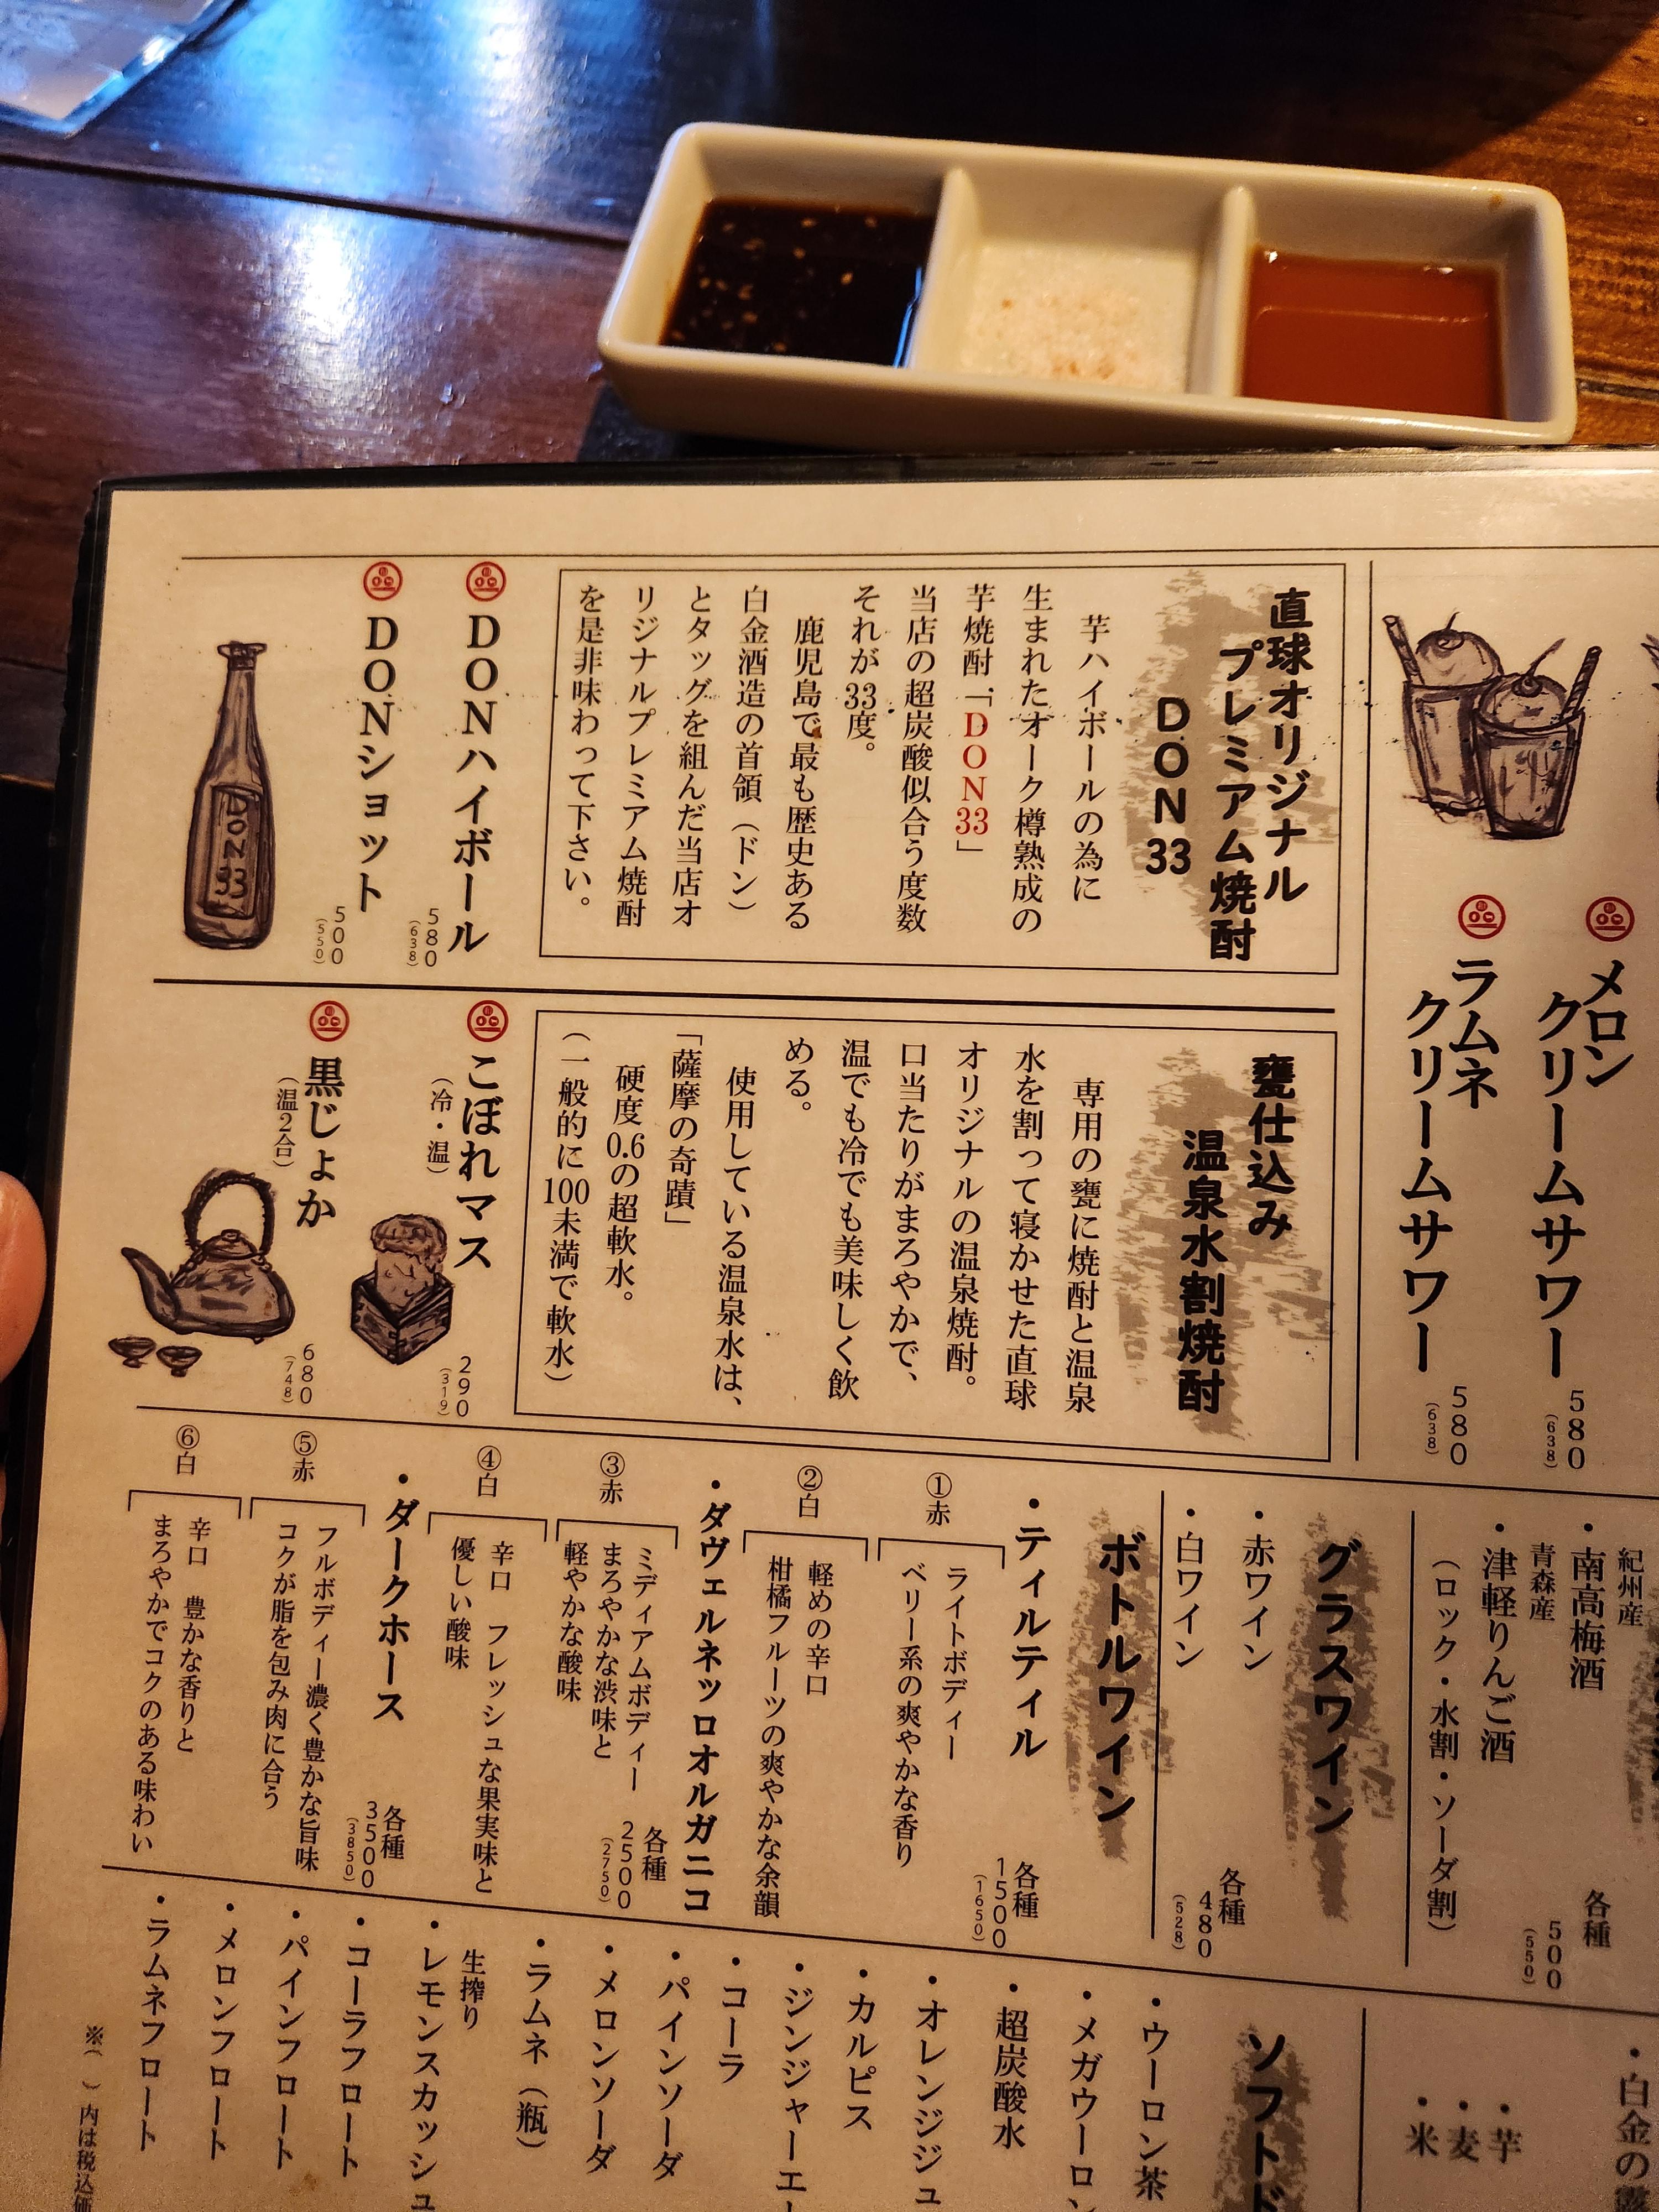 メロン
クリームサワー
580
(638)
ラムネ
クリームサワー
580
(638)
直球オリジナル
プレミアム焼酎
DON33
芋ハイボールの為に
生まれたオーク樽熟成の
芋焼酎「DON33」
当店の超炭酸似合う度数
それが33度。
鹿児島で最も歴史ある
白金酒造の首領(ドン)
とタッグを組んだ当店オ
リジナルプレミアム焼酎
を是非味わって下さい。
DONハイボール
580
(638)
DONショット
500
(550)
DON33
甕仕込み
温泉水割焼酎
専用の甕に焼酎と温泉
水を割って寝かせた直球
オリジナルの温泉焼酎。
口当たりがまろやかで、
温でも冷でも美味しく飲
める。
使用している温泉水は、
「薩摩の奇蹟」
硬度0.6の超軟水。
(一般的に100未満で軟水)
こぼれマス
(冷・温)
290
(319)
黒じょか
(温2合)
680
(748)
紀州産
・南高梅酒
青森産
・津軽りんご酒
(ロック・水割・ソーダ割)
各種
500
(550)
グラスワイン
・赤ワイン
・白ワイン
各種
480
(528)
ボトルワイン
・ティルティル
各種
1500
(1650)
①赤
ライトボディー
ベリー系の爽やかな香り
②白
軽めの辛口
柑橘フルーツの爽やかな余韻
・ダヴェルネッロオルガニコ
各種
2500
(2750)
③赤
ミディアムボディー
まろやかな渋味と
軽やかな酸味
④白
辛口 フレッシュな果実味と
優しい酸味
・ダークホース
各種
3500
(3850)
⑤赤
フルボディー濃く豊かな旨味
コクが脂を包み肉に合う
⑥白
辛口 豊かな香りと
まろやかでコクのある味わい
・白金の
・芋
・麦
・米
ソフトド
・ウーロン茶
・メガウーロン
・超炭酸水
・オレンジジュ
・カルピス
・ジンジャーエ
・コーラ
・パインソーダ
・メロンソーダ
・ラムネ(瓶)
生搾り
・レモンスカッシュ
・コーラフロート
・パインフロート
・メロンフロート
・ラムネフロート
※( )内は税込価